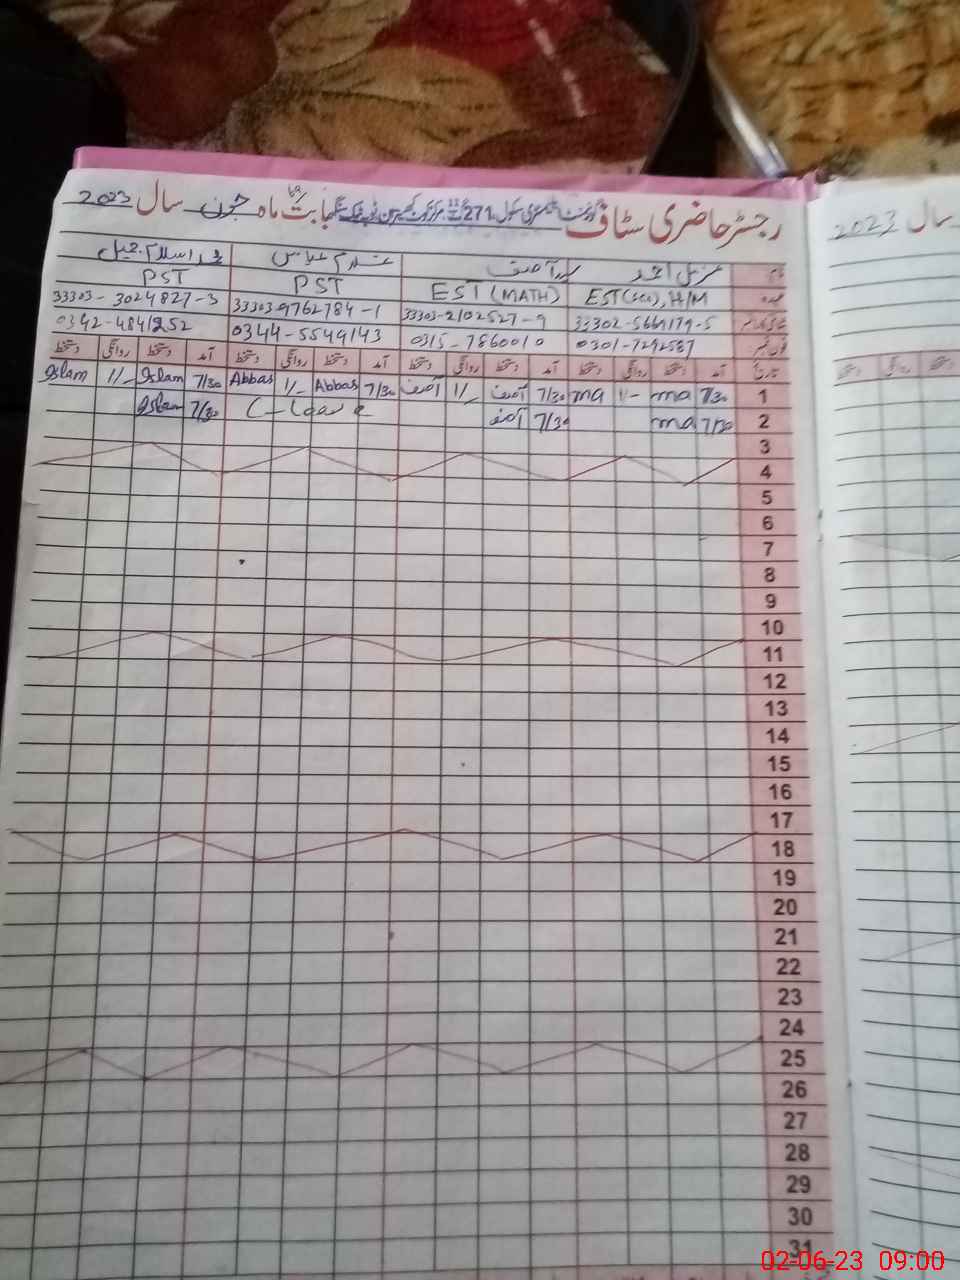 رجسٹر حاضری سٹاف گورنمنٹ ایلیمنٹری سکول 271 بابت ماہ جون سال 2023
نام مزمل احمد غلام عباس
عہدہ EST(sci), H/M EST (MATH) PST PST
33302-5669179-5 33303-2102527-9 33303-9762784-1 33303-3024827-3
0301-7292587 0315-7860010 0344-5549143 0342-4841252
تاریخ آمد دستخط روانگی دستخط آمد دستخط روانگی دستخط آمد دستخط روانگی دستخط آمد دستخط روانگی دستخط
1 7/30 ma 1/- ma 7/30 آصف 1/- آصف 7/30 Abbas 1/- Abbas 7/30 Islam 1/- Islam
2 7/30 ma 7/30 آصف C-Leave 7/30 Islam
3
4
5
6
7
8
9
10
11
12
13
14
15
16
17
18
19
20
21
22
23
24
25
26
27
28
29
30
31
سال 2023
روانگی دستخط
02-06-23 09:00